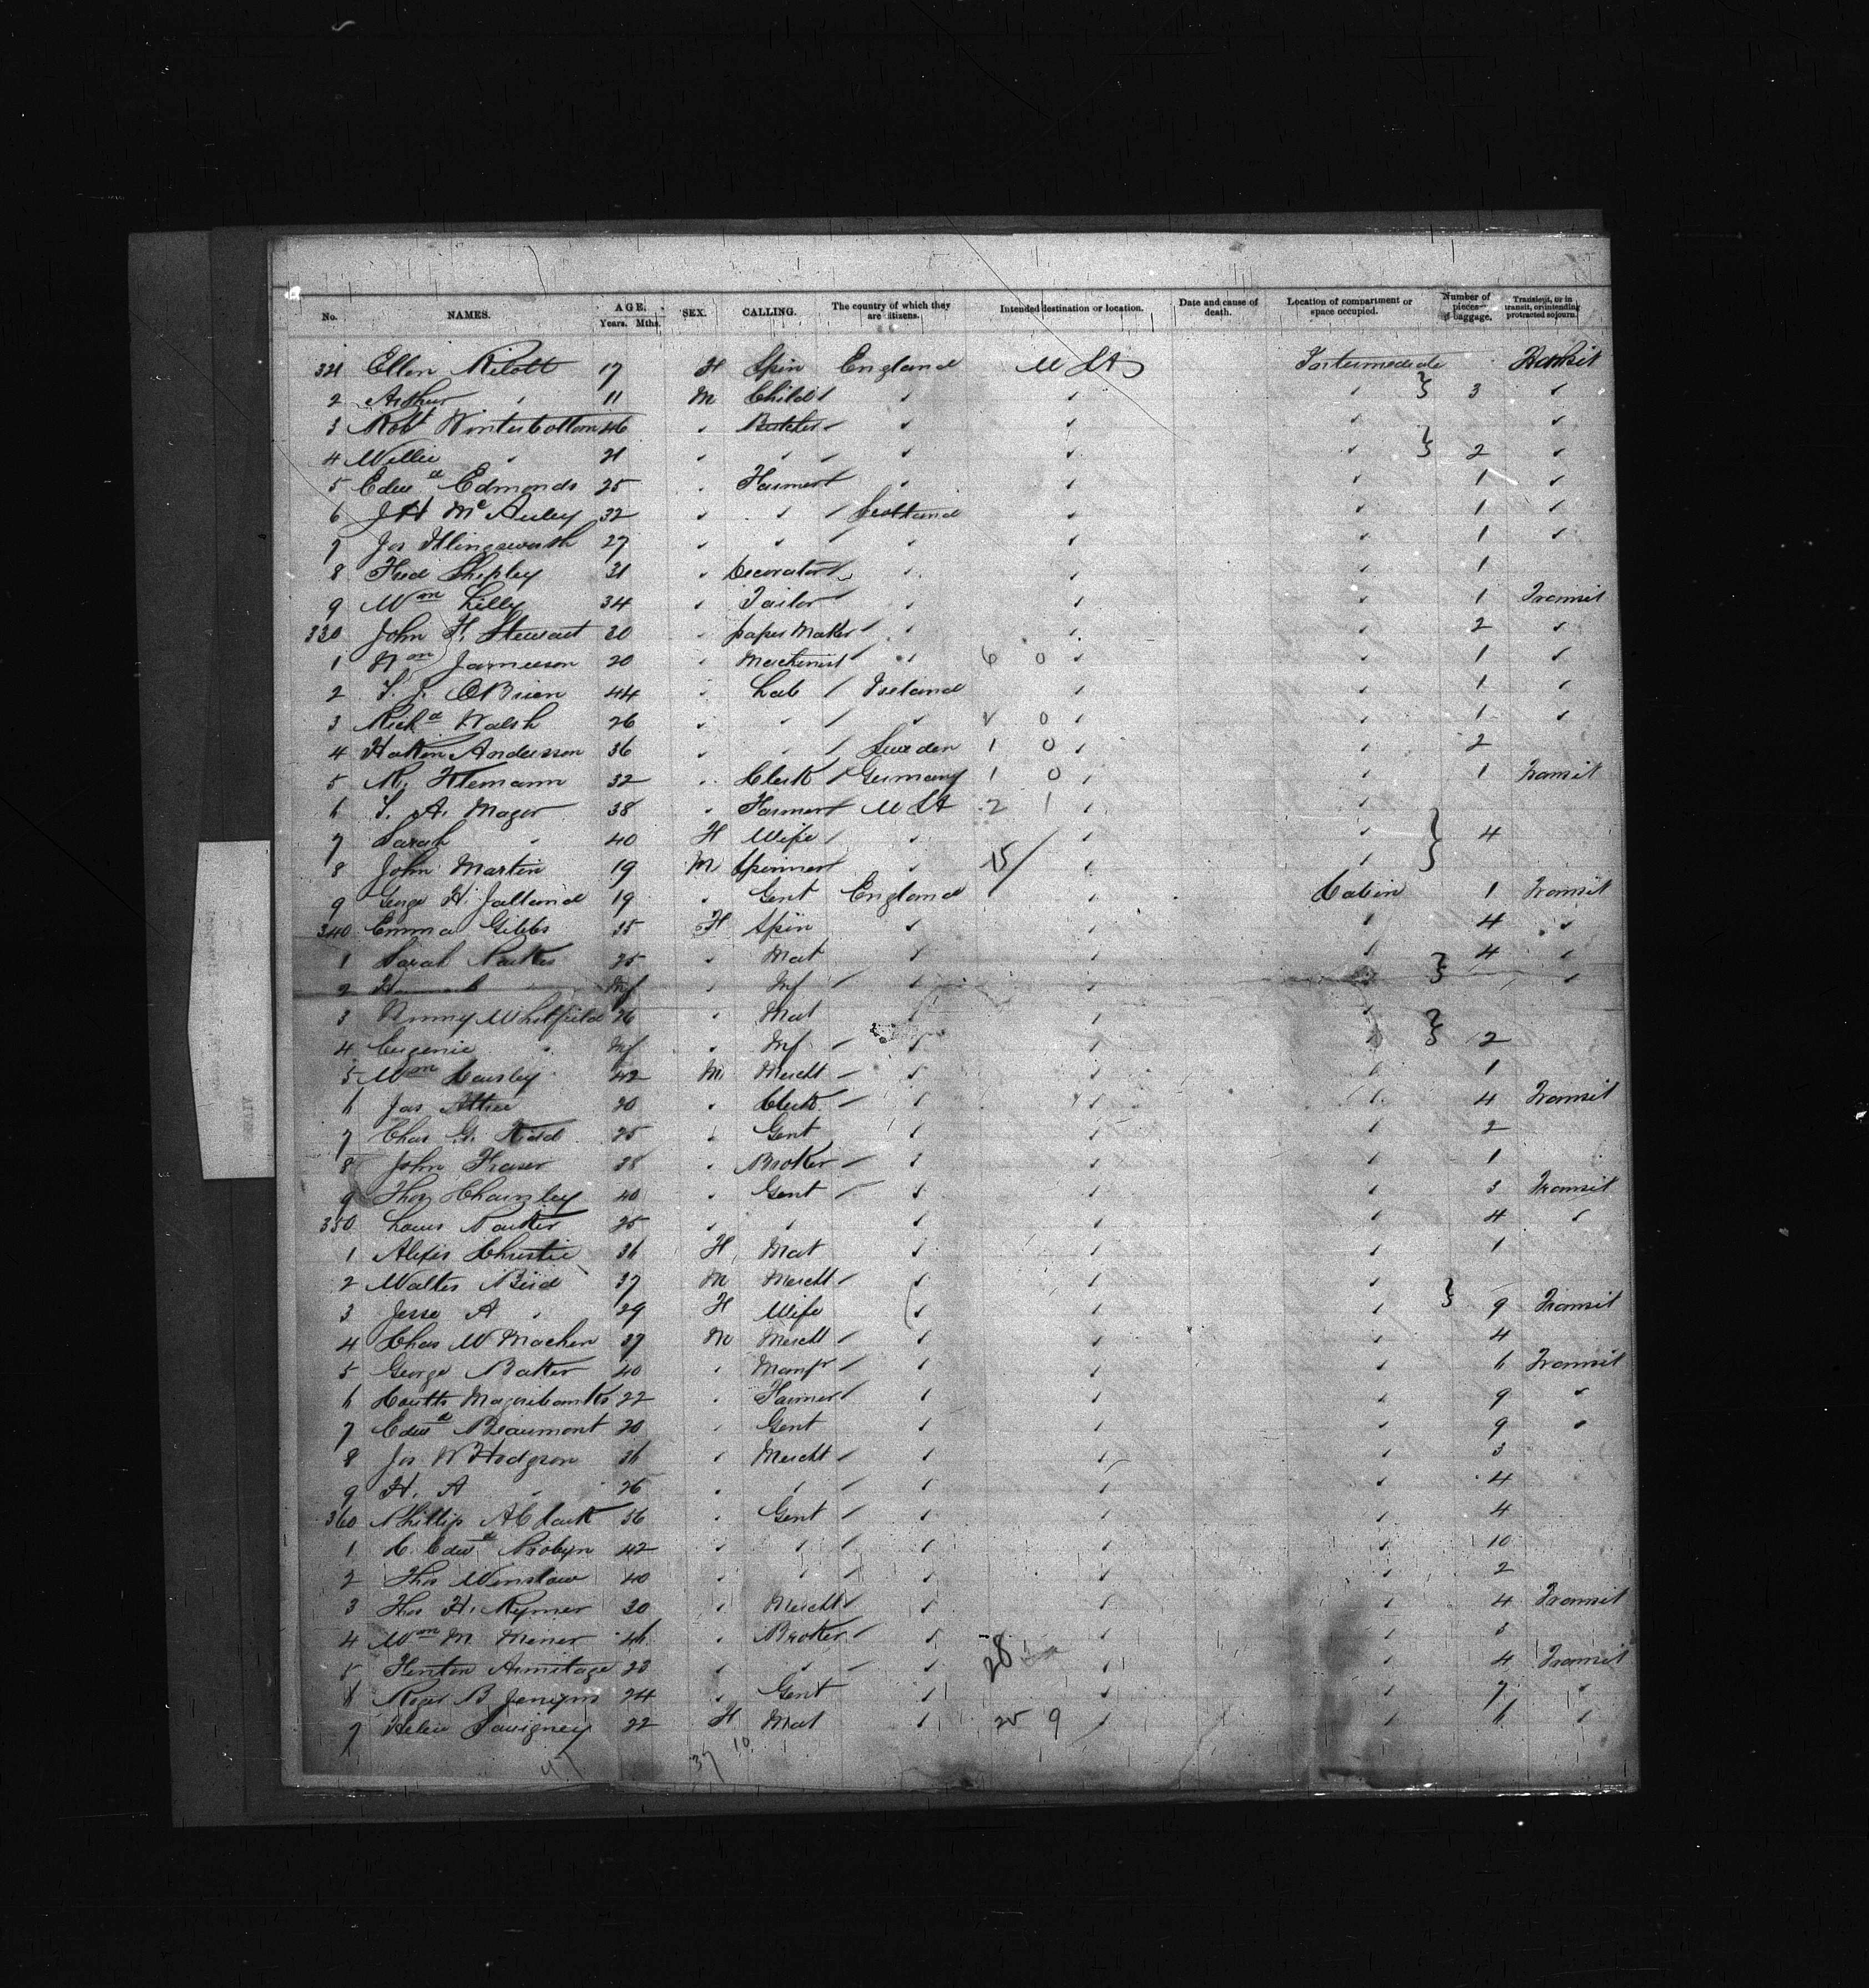 No. NAMES. AGE. Years. Mths. SEX. CALLING. The country of which they are citizens. Intended destination or location. Date and cause of death. Location of compartment or space occupied. Number of pieces of baggage. Transient, or in transit, or intending protracted sojourn.
321 Ellen 17 F Spin England U St Intermediate Transit
2 Arthur " 11 M Child " " " 3 "
3 Robt Winterbottom 46 " Butcher " " " "
4 Willie " 21 " " " " " 2 "
5 Edwd Edmonds 25 " Farmer " " " 1 "
6 J H McAuley 32 " " Scotland " " 1 "
7 Jos Illingsworth 27 " " " " " 1 "
8 Fred Shepley 31 " Decorator " " " 1
9 Wm Lilly 34 " Tailor " " " 1 Transit
330 John F. Stewart 30 " paper Maker " " " 2 "
1 Wm Jamieson 20 " Machinist " 6 0 " " 1 "
2 T. J. OBrien 44 " Lab Ireland " " 1 "
3 Richd Walsh 26 " " " 0 " " 1 "
4 Anderson 36 " " Sweden 1 0 " " 2
5 32 " Clerk Germany 1 0 " " 1 Transit
6 38 " Farmer U St 2 1 " "
7 Sarah " 40 F Wife " " " 4
8 John Martin 19 M Spinner " 15/ " "
9 George H. Jalland 19 " Gent England " Cabin 1 Transit
340 Emma Gibbs 35 F Spin " " " 4 "
1 Sarah 25 " Mat " " " 4 "
2 Inf " Inf " "
3 Whitfield 26 " Mat " " "
4 Eugenie " Inf " Inf " " " 2
5 Wm 42 M Mercht " " " 1
6 Jas 20 " Clerk " " " 4 Transit
7 Chas G. Kidd 25 " Gent " " " 2
8 John Fraser 38 " Broker " " " 1
9 Thos 40 " Gent " " " 3 Transit
350 Louis 25 " " " " " 4 "
1 Christie 36 F Mat " " " 1
2 Walter Bird 37 M Mercht " " "
3 Jesse A " 29 F Wife " " " 9 Transit
4 Chas W Machen 37 M Mercht " " " 4
5 George Baker 40 " Manfr " " " 6 Transit
6 Coutts Majoribanks 22 " Farmer " " " 9 "
7 Edwd Beaumont 20 " Gent " " " 9 "
8 Jos W Hodgson 36 " Mercht " " " 3
9 H. A " 26 " " " " " 4
360 Phillip A Clark 36 " Gent " " " 4
1 C. Edwd Probyn 42 " " " " " 10
2 Thos Winslow 40 " " " " " 2
3 Thos H. Rymer 30 " Mercht " " " 4 Transit
4 Wm M. Miner 46 " Broker " " "
5 Armitage 23 " " " 28 " " 4 Transit
6 Roger B Jenyns 24 " Gent " " " 7 "
7 Helen 22 F Mat " 25 9 " " 6 "
47 37 10